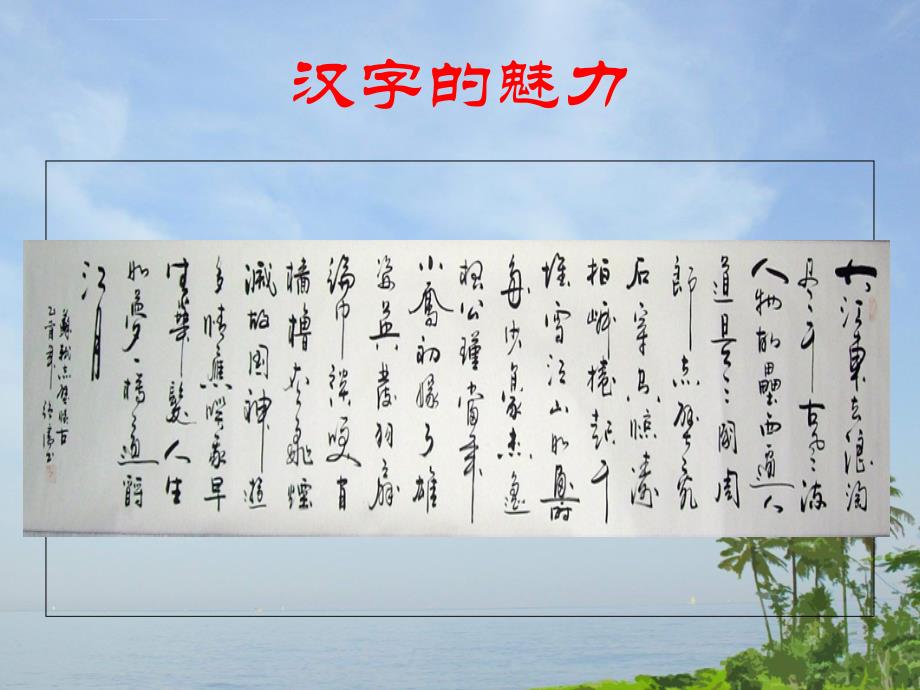 汉字的魅力
大江東去浪淘
尽千古风流
人物故壘西邊人
道是三國周
郎赤壁亂
石穿空惊涛
拍岸捲起千
堆雪江山如画一时
多少豪杰遙
想公瑾當年
小喬初嫁了雄
姿英發羽扇
綸巾談笑间
檣櫓灰飛煙
滅故國神遊
多情應笑我早
生華髮人生
如夢一樽還酹
江月
蘇軾赤壁懷古
乙酉年